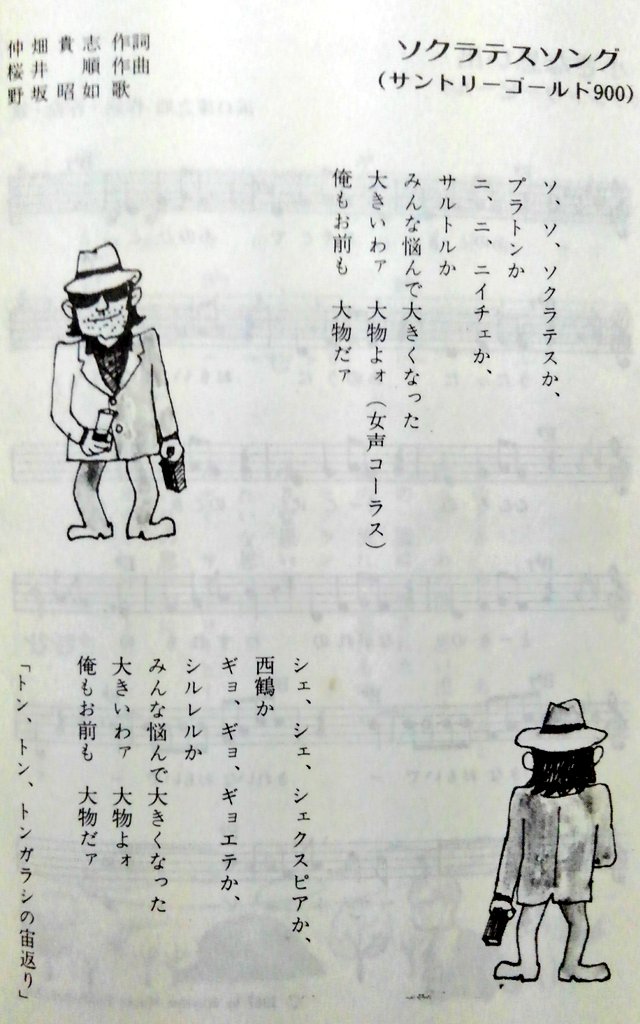 ソクラテスソング
(サントリーゴールド900)
仲畑貴志 作詞
桜井順 作曲
野坂昭如 歌
ソ、ソ、ソクラテスか、
プラトンか
ニ、ニ、ニイチェか、
サルトルか
みんな悩んで大きくなった
大きいわァ 大物よォ(女声コーラス)
俺もお前も 大物だァ
シェ、シェ、シェクスピアか、
西鶴か
ギョ、ギョ、ギョエテか、
シルレルか
みんな悩んで大きくなった
大きいわァ 大物よォ
俺もお前も 大物だァ
「トン、トン、トンガラシの宙返り」